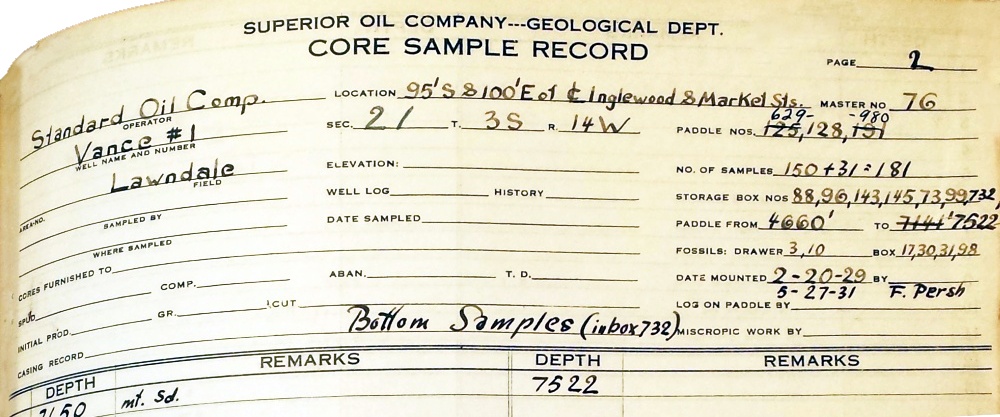 SUPERIOR OIL COMPANY---GEOLOGICAL DEPT.
CORE SAMPLE RECORD
PAGE 2
Standard Oil Comp.
OPERATOR
Vance #1
WELL NAME AND NUMBER
Lawndale
FIELD
AREA-NO.
SAMPLED BY
WHERE SAMPLED
CORES FURNISHED TO
SPUD. COMP.
INITIAL PROD. GR. CUT
CASING RECORD
LOCATION 95'S & 100'E of ℄ Inglewood & Market Sts. MASTER NO 76
SEC. 21 T. 3S R. 14W
ELEVATION:
WELL LOG HISTORY
DATE SAMPLED
ABAN. T. D.
Bottom Samples (in box 732)
629- -980
PADDLE NOS. 125, 128, 191
NO. OF SAMPLES 150 + 31 = 181
STORAGE BOX NOS 88, 96, 143, 145, 73, 99, 732
PADDLE FROM 4660' TO 7141' 7522
FOSSILS: DRAWER 3, 10 BOX 17, 30, 31, 98
DATE MOUNTED 2-20-29 BY
5-27-31 F. Persh
LOG ON PADDLE BY
MISCROPIC WORK BY
DEPTH REMARKS DEPTH REMARKS
7150 mt. Sd. 7522